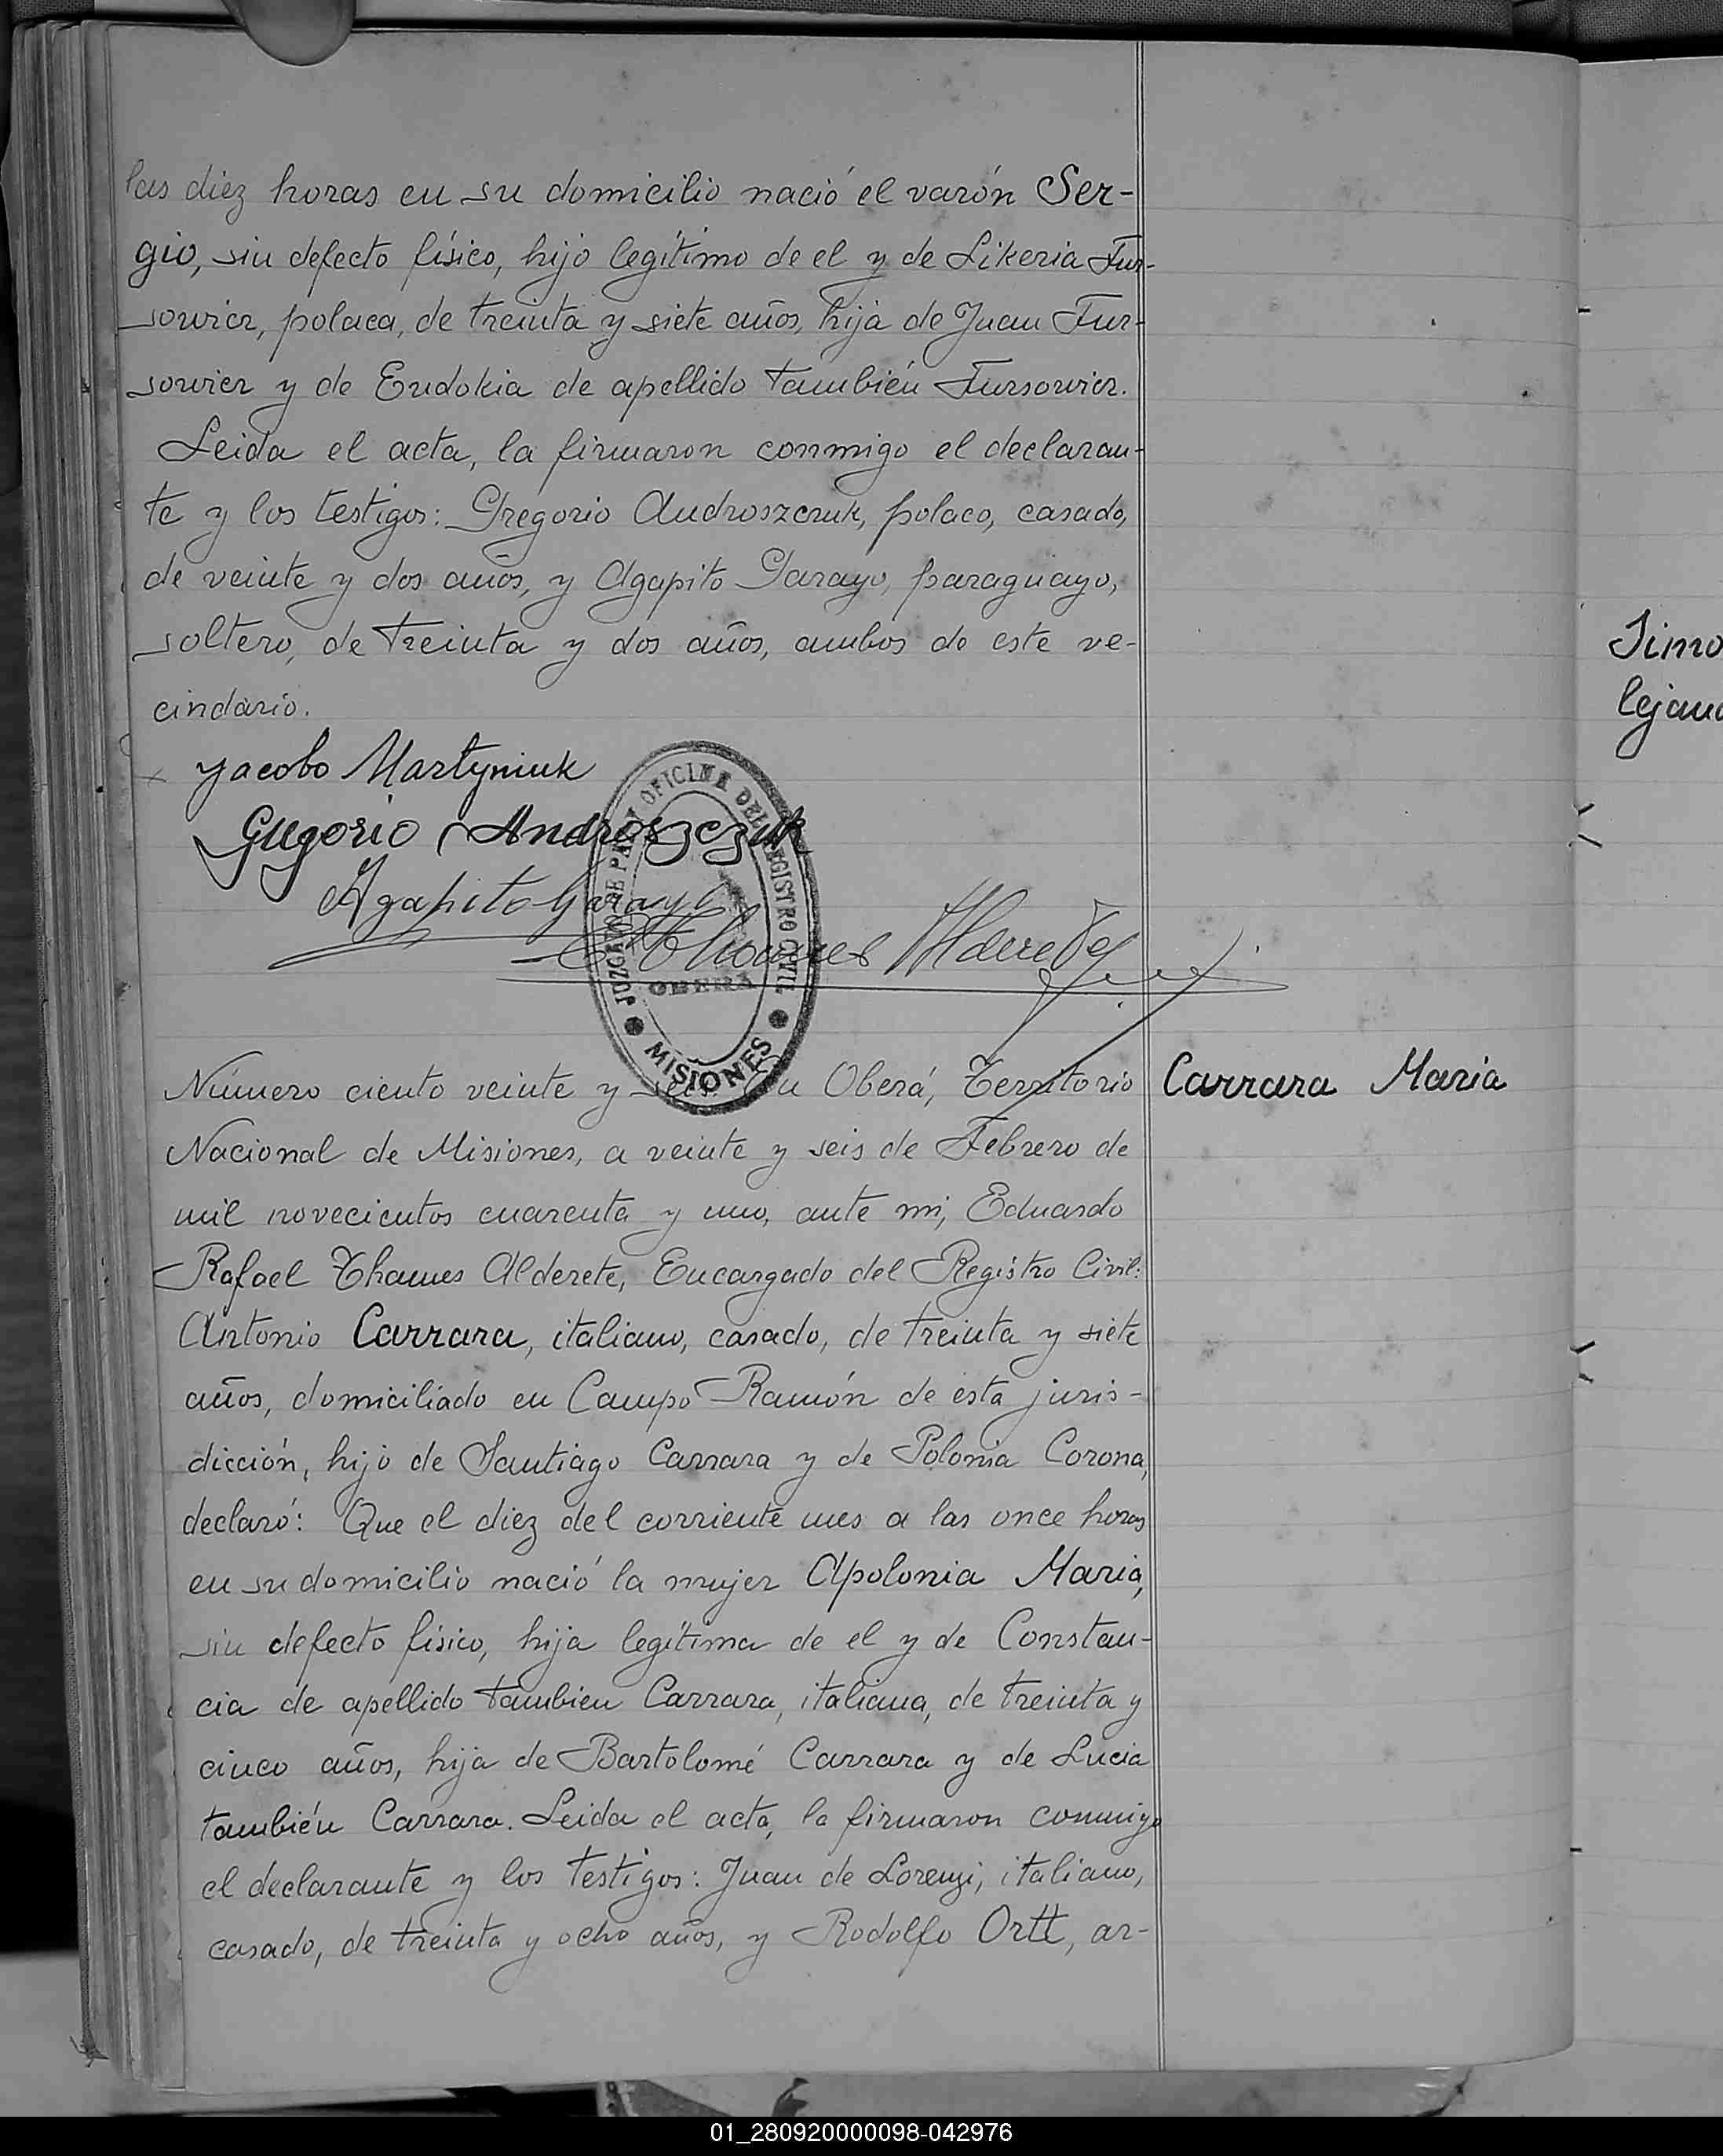 las diez horas en su domicilio nació el varón Ser-
gio, sin defecto físico, hijo legítimo de el y de Likeria Fur-
sowicz, polaca, de treinta y siete años, hija de Juan Fur-
sowicz y de Eudokia de apellido también Fursowicz.
Leida el acta, la firmaron conmigo el declaran-
te y los testigos: Gregorio Androszczuk, polaco, casado,
de veinte y dos años, y Agapito Garayo, paraguayo,
soltero, de treinta y dos años, ambos de este ve-
cindario.
Yacobo Martyniuk
Gregorio Androszczuk
Agapito Garayo
Thames Alderete
JUZGADO DE PAZ Y OFICINA DEL REGISTRO CIVIL
OBERA
MISIONES
Número ciento veinte y seis. En Oberá, Territorio
Carrara Maria
Nacional de Misiones, a veinte y seis de Febrero de
mil novecientos cuarenta y uno, ante mi, Eduardo
Rafael Thames Alderete, Encargado del Registro Civil:
Antonio Carrara, italiano, casado, de treinta y siete
años, domiciliado en Campo Ramón de esta juris-
dicción, hijo de Santiago Carrara y de Polonia Corona,
declaró: Que el diez del corriente mes a las once horas
en su domicilio nació la mujer Apolonia Maria,
sin defecto físico, hija legítima de el y de Constan-
cia de apellido tambien Carrara, italiana, de treinta y
cinco años, hija de Bartolomé Carrara y de Lucia
también Carrara. Leida el acta, la firmaron conmigo
el declarante y los testigos: Juan de Lorenzi, italiano,
casado, de treinta y ocho años, y Rodolfo Ortt, ar-
Timo
lejand
01_280920000098-042976